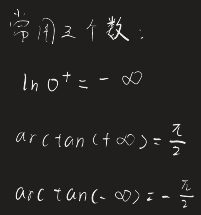 常用三个数：
ln 0⁺ = - ∞
arctan (+∞) = π/2
arctan(-∞) = - π/2